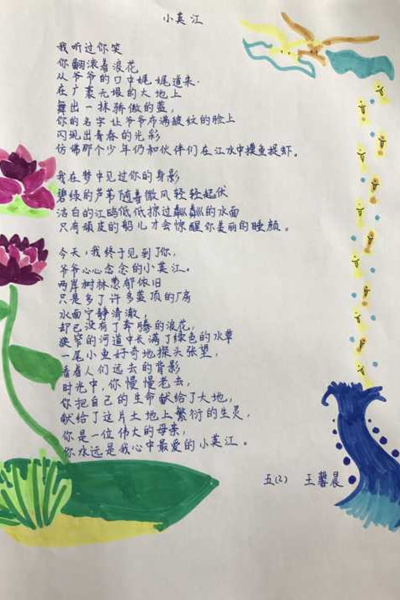 小英江
我听过你笑
你翻滚着浪花
从爷爷的口中娓娓道来.
在广袤无垠的大地上
舞出一抹骄傲的蓝,
你的名字让爷爷布满皱纹的脸上
闪现出青春的光彩
仿佛那个少年仍和伙伴们在江水中摸鱼捉虾.
我在梦中见过你的身影
碧绿的芦苇随着微风轻轻起伏
洁白的江鸥低低掠过粼粼的水面
只有顽皮的船儿才会惊醒你美丽的睡颜.
今天,我终于见到了你,
爷爷心心念念的小英江.
两岸树林葱郁依旧
只是多了许多蓝顶的厂房
水面宁静清澈,
却已没有了奔腾的浪花,
狭窄的河道中长满了绿色的水草
一尾小鱼好奇地探头张望,
看着人们远去的背影
时光中,你慢慢老去,
你把自己的生命献给了大地,
献给了这片土地上繁衍的生灵,
你是一位伟大的母亲,
你永远是我心中最爱的小英江.
五(2) 王馨晨